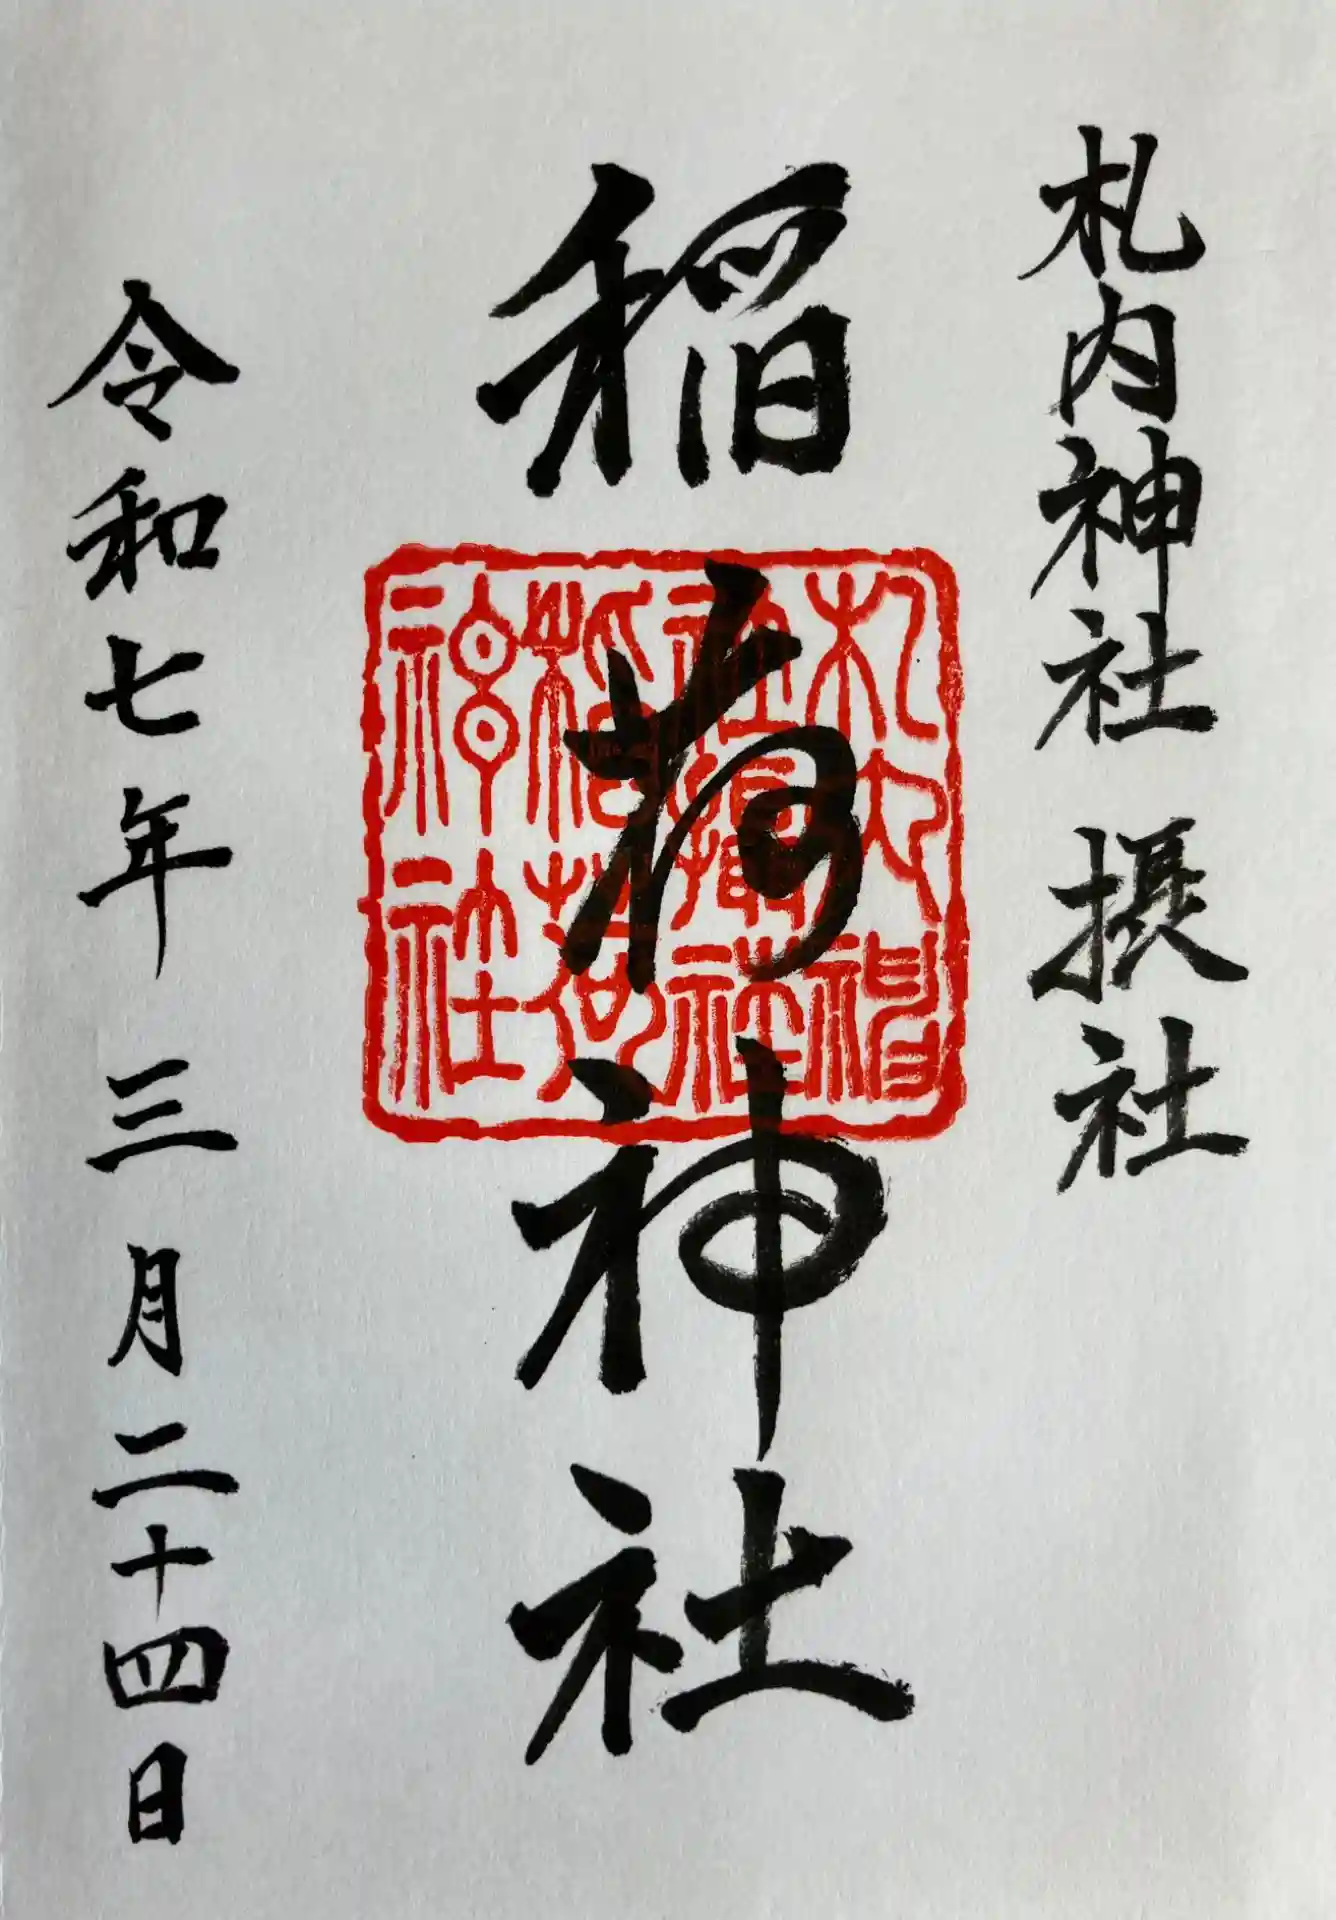 札内神社 摂社
稲荷神社
札内神
社摂社
稲荷
神社
令和七年三月二十四日